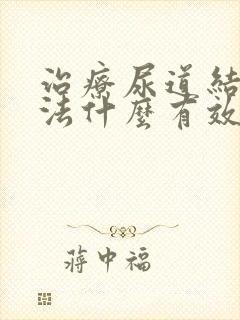 治療尿道結
法什麼有效
蔣中福